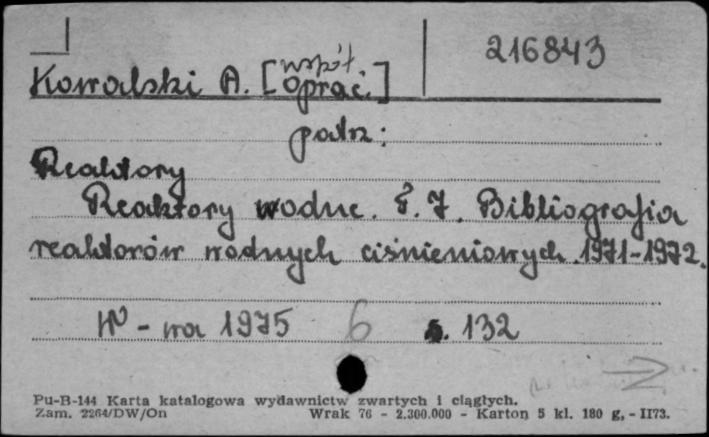 216843
współ.
Kowalski A. [oprac.]
patrz:
Reaktory
Reaktory wodne. T. 7. Bibliografia
reaktorów wodnych ciśnieniowych. 1971-1972.
W-wa 1975 6 s. 132
Pu-B-144 Karta katalogowa wydawnictw zwartych i ciągłych.
Zam. 2264/DW/On Wrak 76 - 2.300.000 - Karton 5 kl. 180 g, - II73.